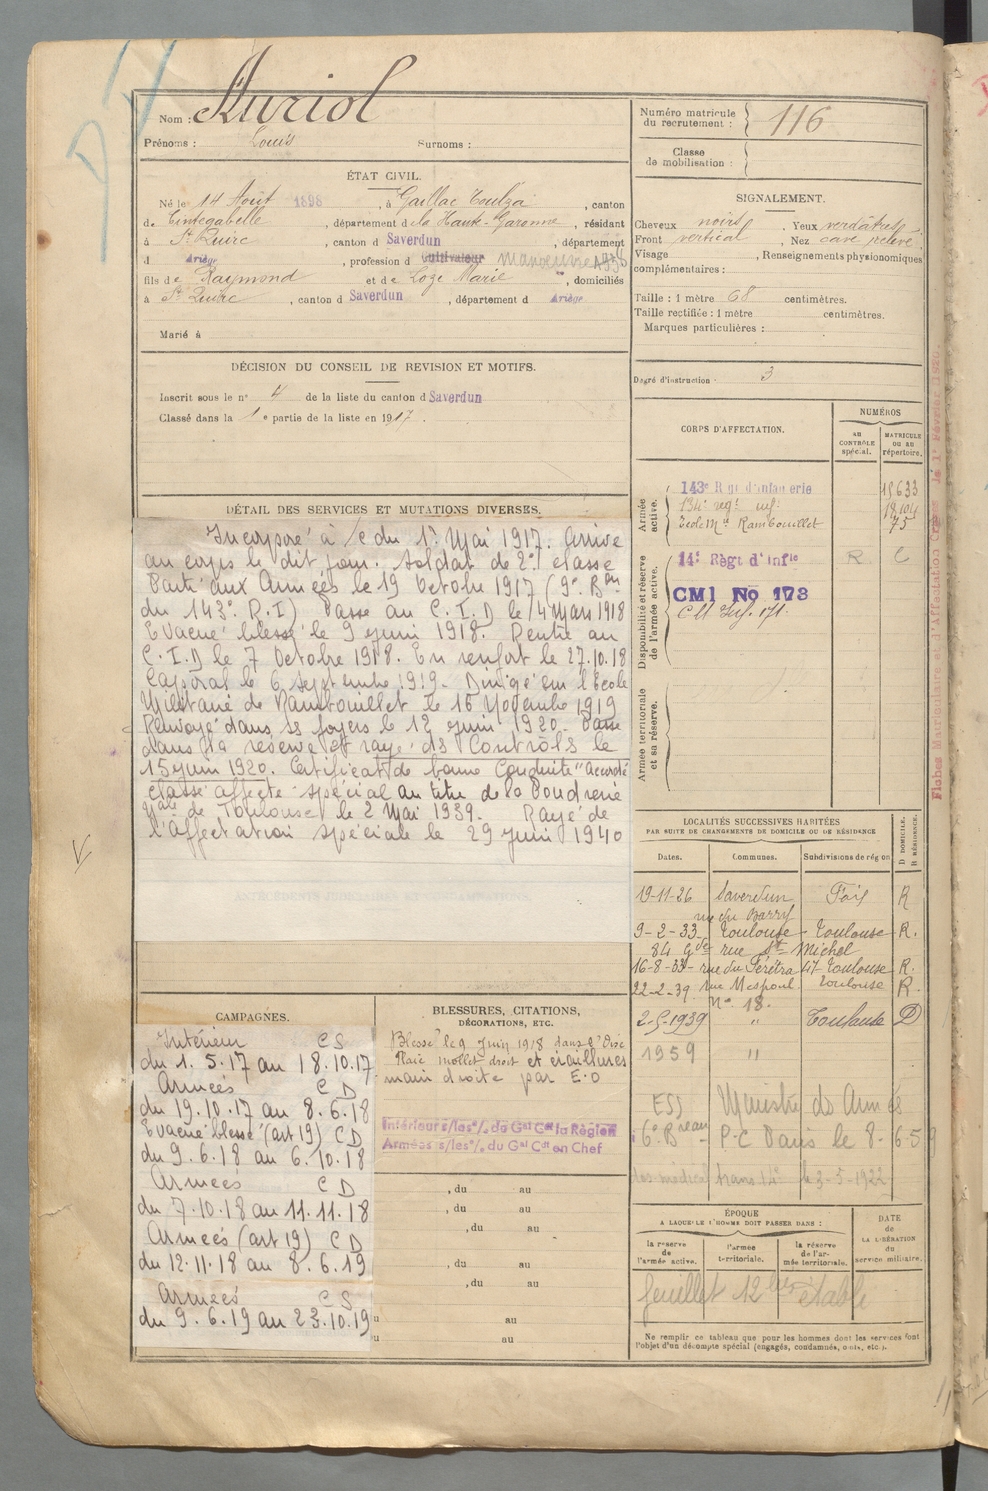 Nom : Auriol
Prénoms : Louis Surnoms :
ÉTAT CIVIL.
Né le 14 Août 1898, à Gaillac Toulza, canton
de Cintegabelle, département de la Haute-Garonne, résidant
à St Quirc, canton d Saverdun, département
d Ariège, profession d cultivateur manoeuvre
fils de Raymond et de Loze Marie, domiciliés
à St Quirc, canton d Saverdun, département d Ariège
Marié à
DÉCISION DU CONSEIL DE REVISION ET MOTIFS.
Inscrit sous le n° 4 de la liste du canton d Saverdun
Classé dans la 1e partie de la liste en 1917.
DÉTAIL DES SERVICES ET MUTATIONS DIVERSES.
Incorporé à /c du 1er Mai 1917. Arrivé
au corps le dit jour. Soldat de 2e classe
Parti aux Armées le 19 Octobre 1917 (9e Bon
du 143e R.I) Passé au C.I.D le 14 Mars 1918
Evacué blessé le 9 juin 1918. Rentré au
C.I.D le 7 Octobre 1918. En renfort le 27.10.18
Caporal le 6 septembre 1919. Dirigé sur l'École
Militaire de Rambouillet le 16 Novembre 1919
Renvoyé dans ses foyers le 12 juin 1920. Passé
dans la réserve et rayé des Contrôls le
15 juin 1920. Certificat de bonne Conduite "Accordé
Classé affecté spécial au titre de la Poudrerie
Nale de Toulouse le 2 Mai 1939. Rayé de
l'Affectation spéciale le 29 juin 1940
ANTÉCÉDENTS JUDICIAIRES ET CONDAMNATIONS.
CAMPAGNES.
Intérieur C S
du 1.5.17 au 18.10.17
Armées C D
du 19.10.17 au 8.6.18
Evacué blessé (art 19) C D
du 9.6.18 au 6.10.18
Armées C D
du 7.10.18 au 11.11.18
Armées (art 19) C D
du 12.11.18 au 8.6.19
Armées C S
du 9.6.19 au 23.10.19
BLESSURES, CITATIONS,
DÉCORATIONS, ETC.
Blessé le 9 Juin 1918 dans l'Oise
Plaie mollet droit et éraillures
main droite par E.O
Intérieur s/les o/. du Gal Ct la Région
Armées s/les o/. du Gal Ct en Chef
, du au
, du au
, du au
, du au
, du au
u au
u au
Numéro matricule
du recrutement : 116
Classe
de mobilisation :
SIGNALEMENT.
Cheveux noirs. Yeux verdâtres
Front vertical, Nez cave relevé
Visage, Renseignements physionomiques
complémentaires :
Taille : 1 mètre 68 centimètres.
Taille rectifiée : 1 mètre centimètres.
Marques particulières :
Degré d'instruction : 3
CORPS D'AFFECTATION.
NUMÉROS
AU CONTRÔLE spécial.
MATRICULE OU AU répertoire.
Armée active.
143e Rgt d'infanterie 15633
134e regt inf. 18104
Ecole Mre Rambouillet 75
Disponibilité et réserve de l'armée active.
14e Règt d'Infie R C
CMI No 173
CM Inf. 171.
Armée territoriale et sa réserve.
LOCALITÉS SUCCESSIVES HABITÉES
PAR SUITE DE CHANGEMENTS DE DOMICILE OU DE RÉSIDENCE
Dates. Communes. Subdivisions de région
D DOMICILE.
R RÉSIDENCE.
19-11-26 Saverdun Foix R
rue du Barry
9-2-33 Toulouse Toulouse R.
84 Gde rue St Michel
16-8-33 rue du Férétra 47 Toulouse R.
22-2-39 rue Mespoul Toulouse R.
N° 18.
2-5-1939 " Toulouse D
1959 "
ESS Ministre des Armées
6e Breau P.C Paris le 8-6-59
trans 14e le 3-5-1922
ÉPOQUE
A LAQUELLE L'HOMME DOIT PASSER DANS :
la réserve de l'armée active.
l'armée territoriale.
la réserve de l'armée territoriale.
DATE
de
LA LIBÉRATION
du
service militaire.
feuillet 12 bis établi
Ne remplir ce tableau que pour les hommes dont les services font
l'objet d'un décompte spécial (engagés, condamnés, omis, etc.).